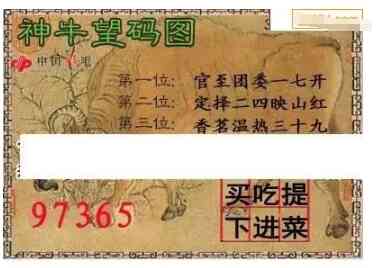 神牛望码图
中国
第一位: 官至团委一七开
第二位: 定择二四映山红
第三位: 香茗温热三十九
97365
买吃提
下进菜